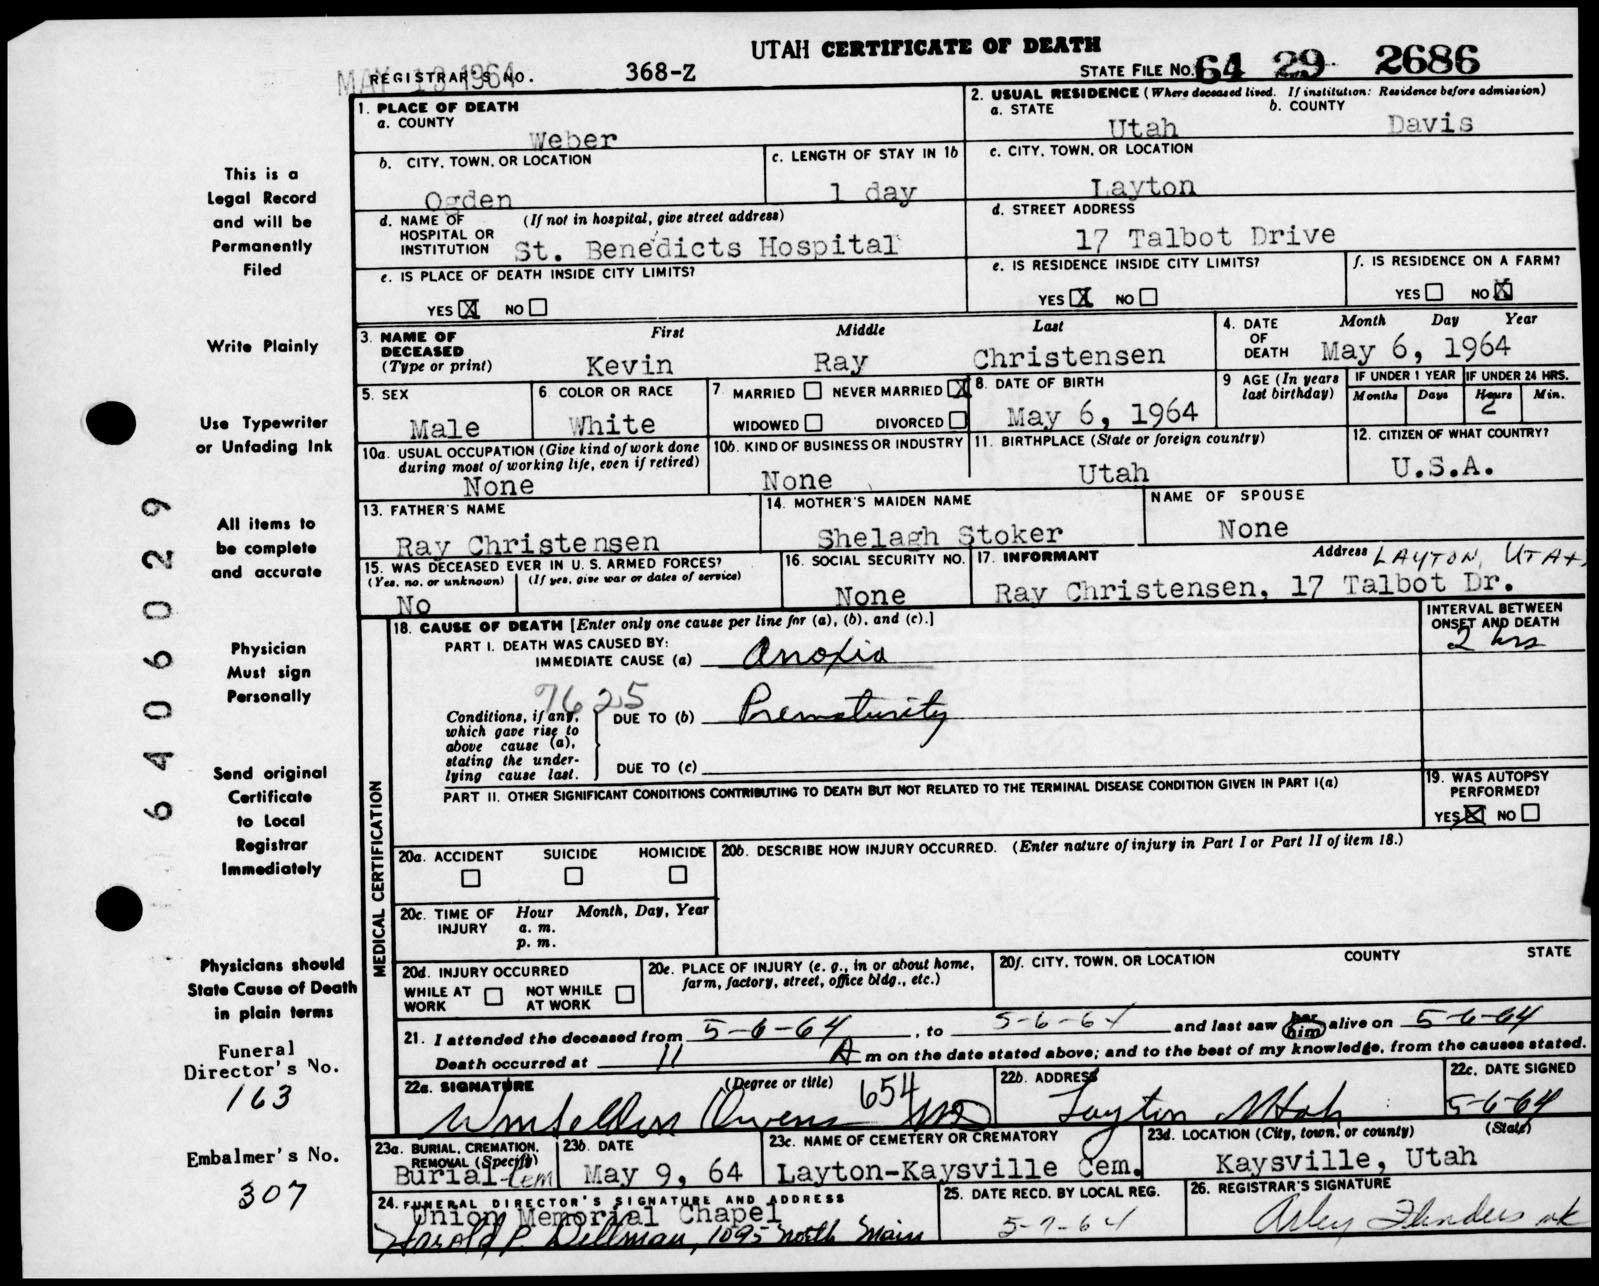 UTAH CERTIFICATE OF DEATH
MAY 13 1964
REGISTRAR'S NO. 368-Z
STATE FILE NO. 64 29 2686
1. PLACE OF DEATH
a. COUNTY
Weber
2. USUAL RESIDENCE (Where deceased lived. If institution: Residence before admission)
a. STATE b. COUNTY
Utah Davis
b. CITY, TOWN, OR LOCATION
Ogden
c. LENGTH OF STAY IN 1b
1 day
c. CITY, TOWN, OR LOCATION
Layton
d. NAME OF HOSPITAL OR INSTITUTION (If not in hospital, give street address)
St. Benedicts Hospital
d. STREET ADDRESS
17 Talbot Drive
e. IS PLACE OF DEATH INSIDE CITY LIMITS?
YES X NO
e. IS RESIDENCE INSIDE CITY LIMITS?
YES X NO
f. IS RESIDENCE ON A FARM?
YES NO X
3. NAME OF DECEASED (Type or print)
First Middle Last
Kevin Ray Christensen
4. DATE OF DEATH
Month Day Year
May 6, 1964
5. SEX
Male
6. COLOR OR RACE
White
7 MARRIED NEVER MARRIED X
WIDOWED DIVORCED
8. DATE OF BIRTH
May 6, 1964
9 AGE (In years last birthday)
IF UNDER 1 YEAR IF UNDER 24 HRS.
Months Days Hours Min.
2
10a. USUAL OCCUPATION (Give kind of work done during most of working life, even if retired)
None
10b. KIND OF BUSINESS OR INDUSTRY
None
11. BIRTHPLACE (State or foreign country)
Utah
12. CITIZEN OF WHAT COUNTRY?
U.S.A.
13. FATHER'S NAME
Ray Christensen
14. MOTHER'S MAIDEN NAME
Shelagh Stoker
NAME OF SPOUSE
None
15. WAS DECEASED EVER IN U. S. ARMED FORCES?
(Yes, no, or unknown) (If yes, give war or dates of service)
No
16. SOCIAL SECURITY NO.
None
17. INFORMANT Address LAYTON, UTAH
Ray Christensen, 17 Talbot Dr.
MEDICAL CERTIFICATION
18. CAUSE OF DEATH [Enter only one cause per line for (a), (b), and (c).]
INTERVAL BETWEEN ONSET AND DEATH
2 hrs
PART I. DEATH WAS CAUSED BY:
IMMEDIATE CAUSE (a) Anoxia
7625
Conditions, if any, which gave rise to above cause (a), stating the underlying cause last.
DUE TO (b) Prematurity
DUE TO (c)
PART II. OTHER SIGNIFICANT CONDITIONS CONTRIBUTING TO DEATH BUT NOT RELATED TO THE TERMINAL DISEASE CONDITION GIVEN IN PART I(a)
19. WAS AUTOPSY PERFORMED?
YES X NO
20a. ACCIDENT SUICIDE HOMICIDE
20b. DESCRIBE HOW INJURY OCCURRED. (Enter nature of injury in Part I or Part II of item 18.)
20c. TIME OF INJURY Hour Month, Day, Year
a. m.
p. m.
20d. INJURY OCCURRED
WHILE AT WORK NOT WHILE AT WORK
20e. PLACE OF INJURY (e. g., in or about home, farm, factory, street, office bldg., etc.)
20f. CITY, TOWN, OR LOCATION COUNTY STATE
21. I attended the deceased from 5-6-64, to 5-6-64 and last saw her him alive on 5-6-64
Death occurred at 11 A m on the date stated above; and to the best of my knowledge, from the causes stated.
22a. SIGNATURE (Degree or title) 654
Owens MD
22b. ADDRESS
Layton Utah
22c. DATE SIGNED
5-6-64
23a. BURIAL, CREMATION, REMOVAL (Specify)
Burial-Cem
23b. DATE
May 9, 64
23c. NAME OF CEMETERY OR CREMATORY
Layton-Kaysville Cem.
23d. LOCATION (City, town, or county) (State)
Kaysville, Utah
24. FUNERAL DIRECTOR'S SIGNATURE AND ADDRESS
Union Memorial Chapel
Harold P. Dellman, 1095 North Main
25. DATE RECD. BY LOCAL REG.
5-7-64
26. REGISTRAR'S SIGNATURE
Arley Flinders
This is a
Legal Record
and will be
Permanently
Filed
Write Plainly
Use Typewriter
or Unfading Ink
All items to
be complete
and accurate
Physician
Must sign
Personally
Send original
Certificate
to Local
Registrar
Immediately
Physicians should
State Cause of Death
in plain terms
Funeral
Director's No.
163
Embalmer's No.
307
6406029